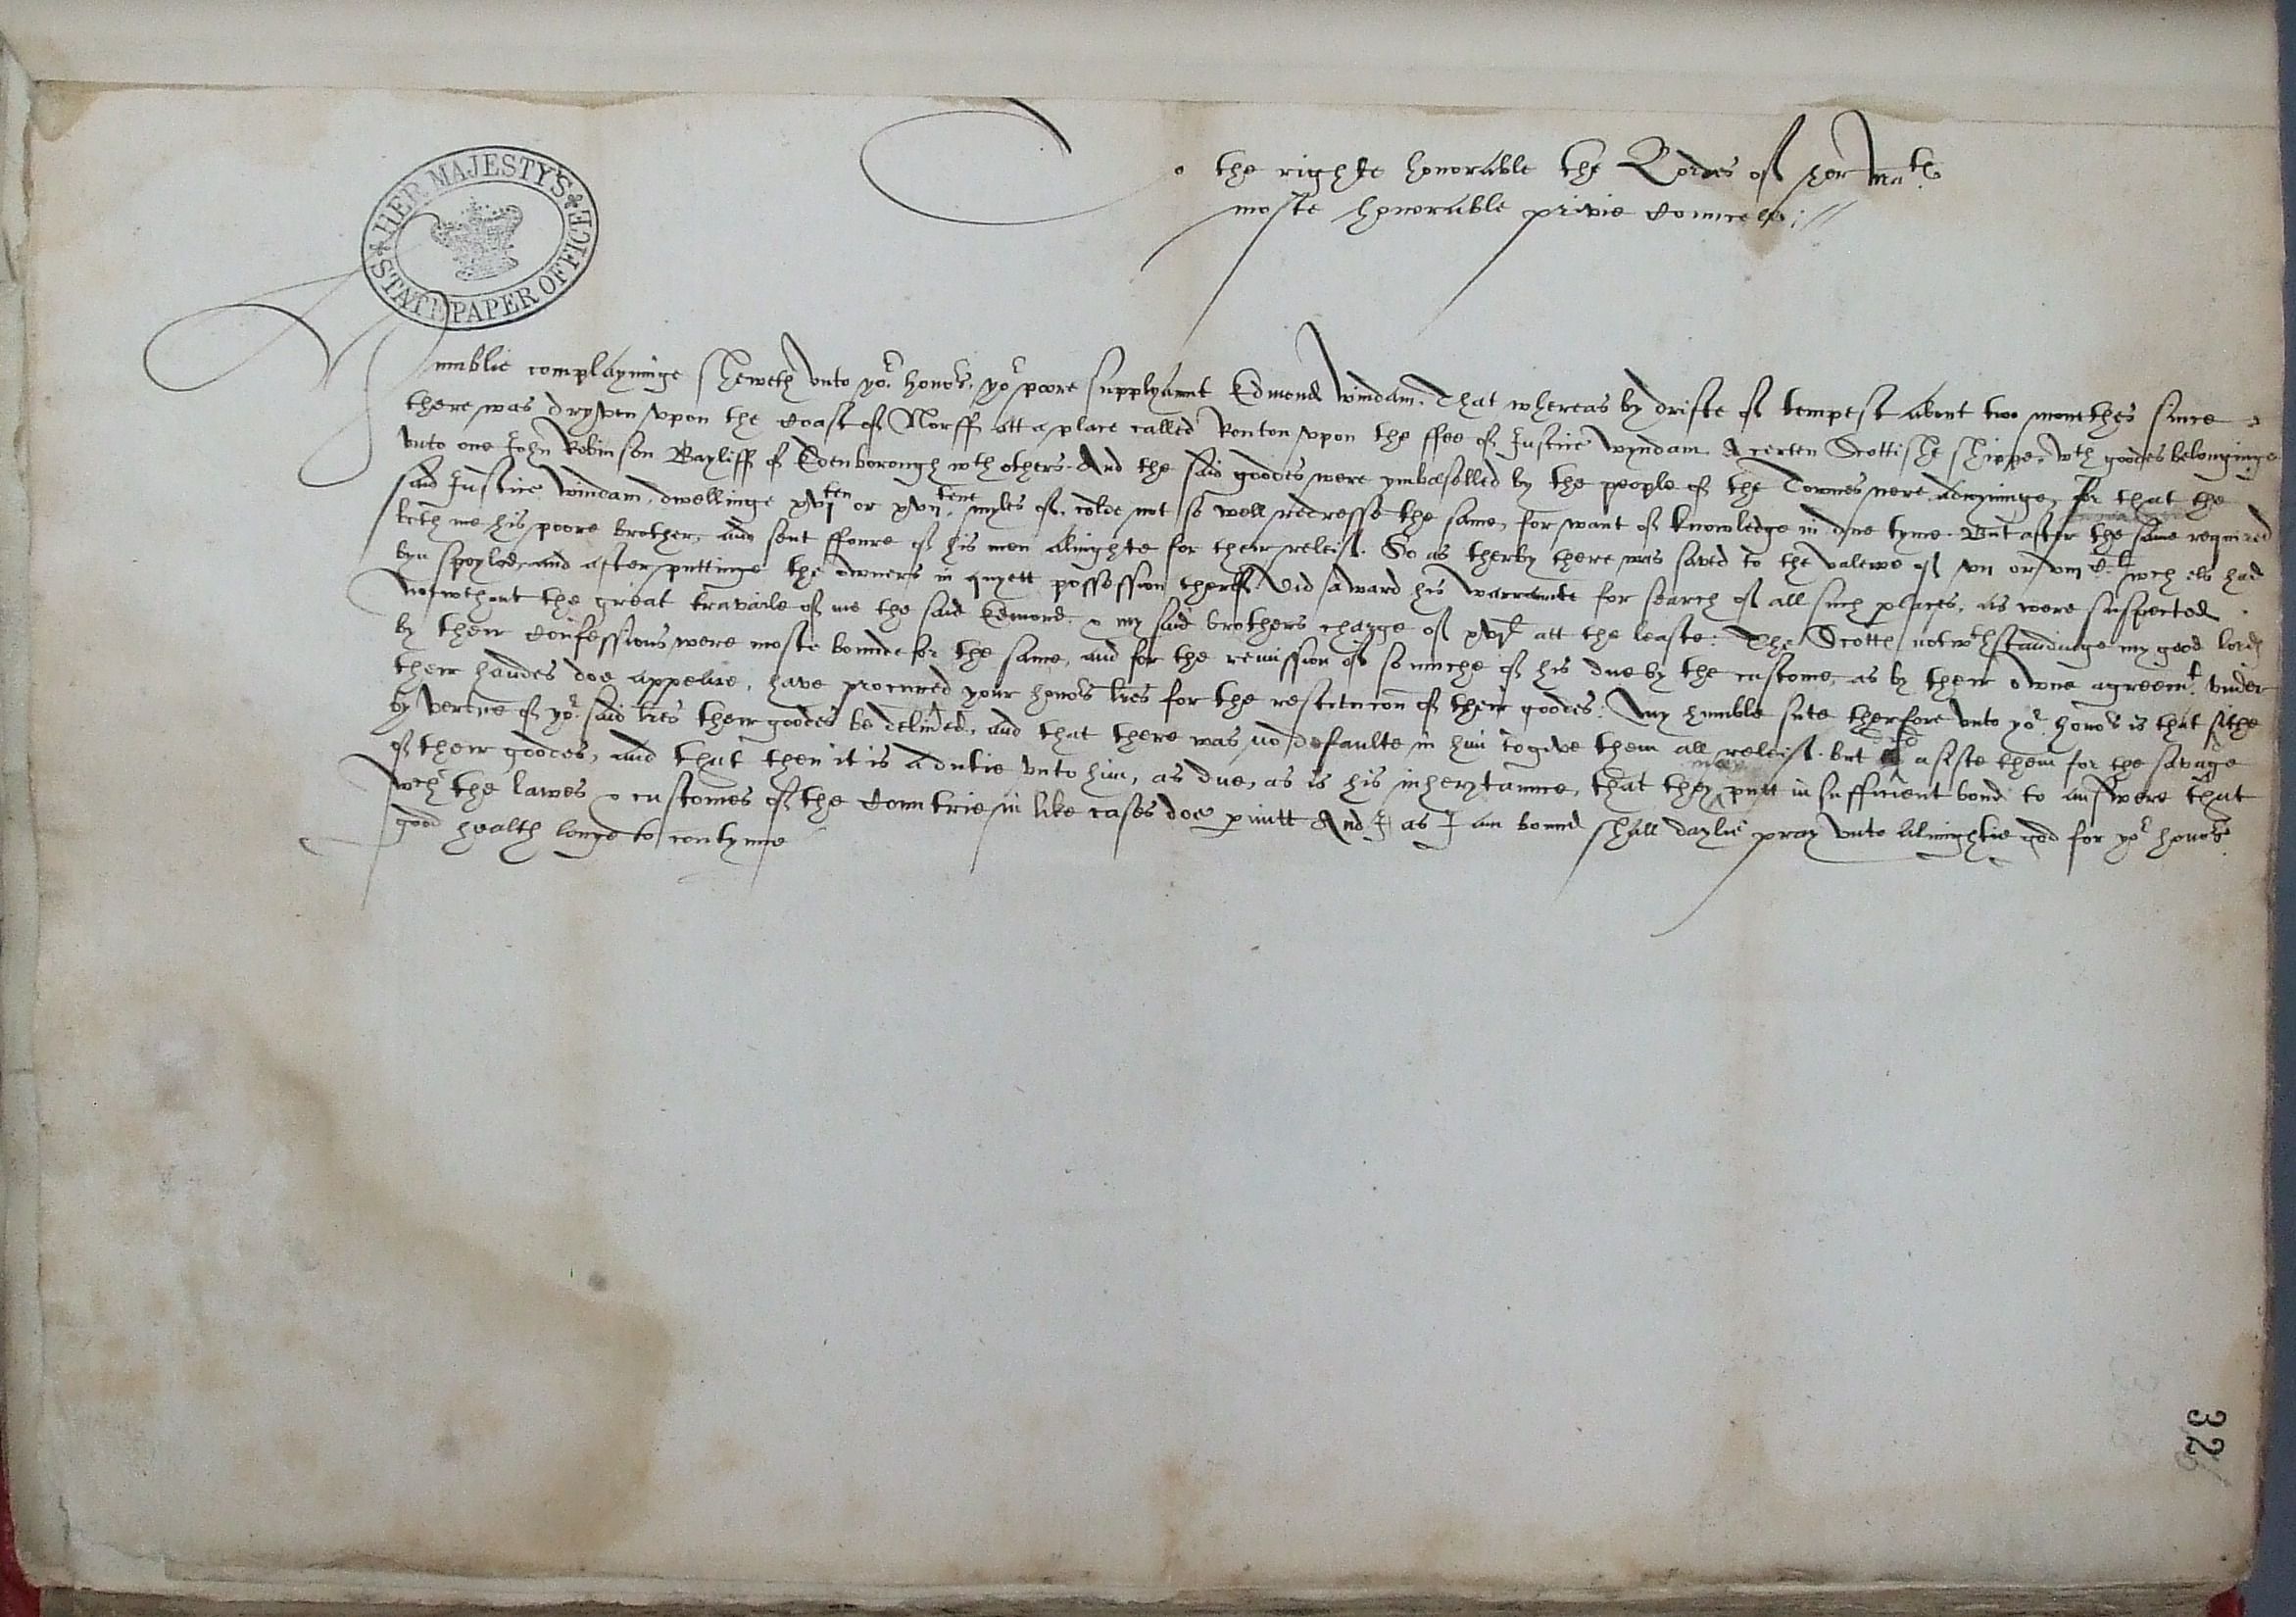 HER MAJESTY'S STATE PAPER OFFICE
To the righte honorable the Lordes of her Ma.tes
moste honorable privie Councell://
Humblie complayninge sheweth vnto yor. honors. yor poore supplyaunt Edmond Windam. That whereas by drifte of tempest about two monethes since
there was dryven vpon the Coast of Norff. att a place called Ronton vpon the ffee of Justice Wyndam. A certen Scottishe shippe, wth goodes belonginge
vnto one John Robinson Bayliff of Edenborough wth others. And the said goodes were ymbeselled by the people of the Townes nere adioyninge, for that the
said Justice Windam, dwellinge xvj ten or xvij tene myles of. colde not so well redresse the same, for want of knowledge in due tyme. But after the same required
both me his poore brother, and sent ffoure of his men abnighte for their releif. So as therby there was saved to the valewe of vij or viij C. li wch els had
byn spoyled, and after puttinge the owners in quyett possession therof. Did award his warraunte for search of all such places, as were suspected.
Not wthout the great travaile of me the said Edmond. & my said brothers charge of xvj li att the leaste: The Scotts notwthstandinge my good lords
by their Confessions were moste bounde for the same, and for the remission of so muche of his due by the custome, as by their owne agreemt. vnder
their handes doe appeare, have procured your honors lres for the restitucon of their goodes. My humble sute therfore vnto yor honors is that sithe
by vertue of yor. said lres their goodes be delived, and that there was no defaulte in him to give them all releif. but to asiste them for the savage
of their goodes, and that then it is a dutie vnto him, as due, as is his inherytaunce, that they may putt in sufficient bond to answere that
wch the lawes & customes of the Countrie in like cases doe pmitt And I as I am bound shall daylie pray vnto almightie god for yor honors
good health longe to contynue
326